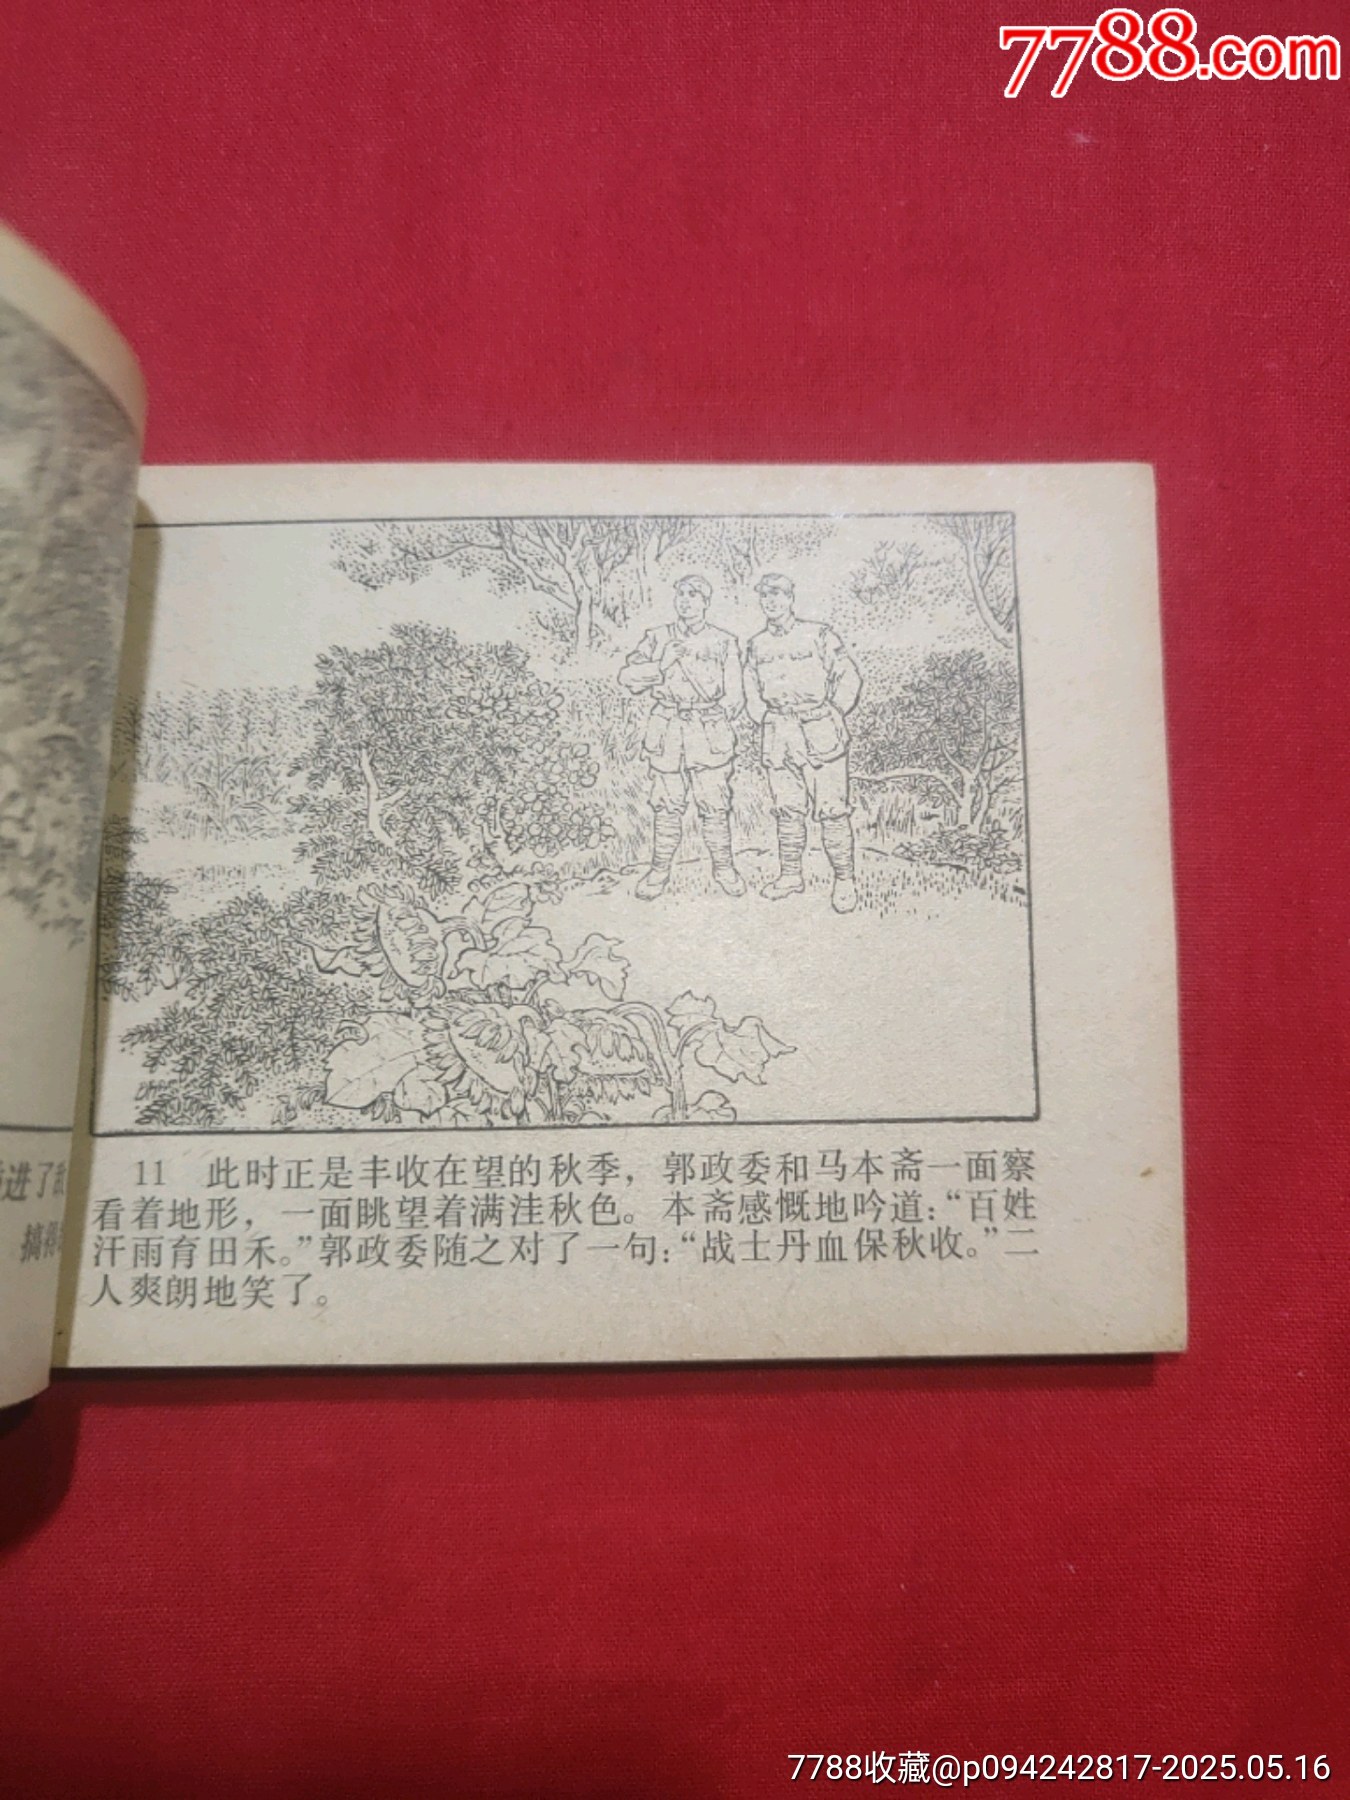 7788.com
进了
搞得
11 此时正是丰收在望的秋季，郭政委和马本斋一面察
看着地形，一面眺望着满洼秋色。本斋感慨地吟道：“百姓
汗雨育田禾。”郭政委随之对了一句：“战士丹血保秋收。”二
人爽朗地笑了。
7788收藏@p094242817-2025.05.16